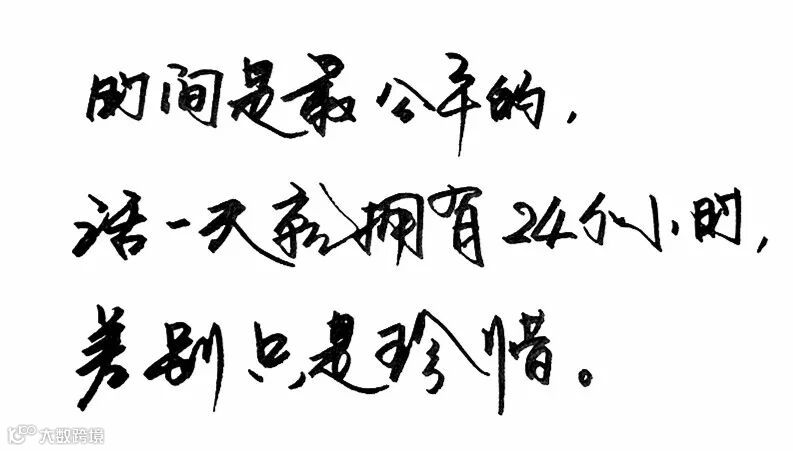 时间是最公平的，
活一天就拥有24个小时，
差别只是珍惜。
大数跨境